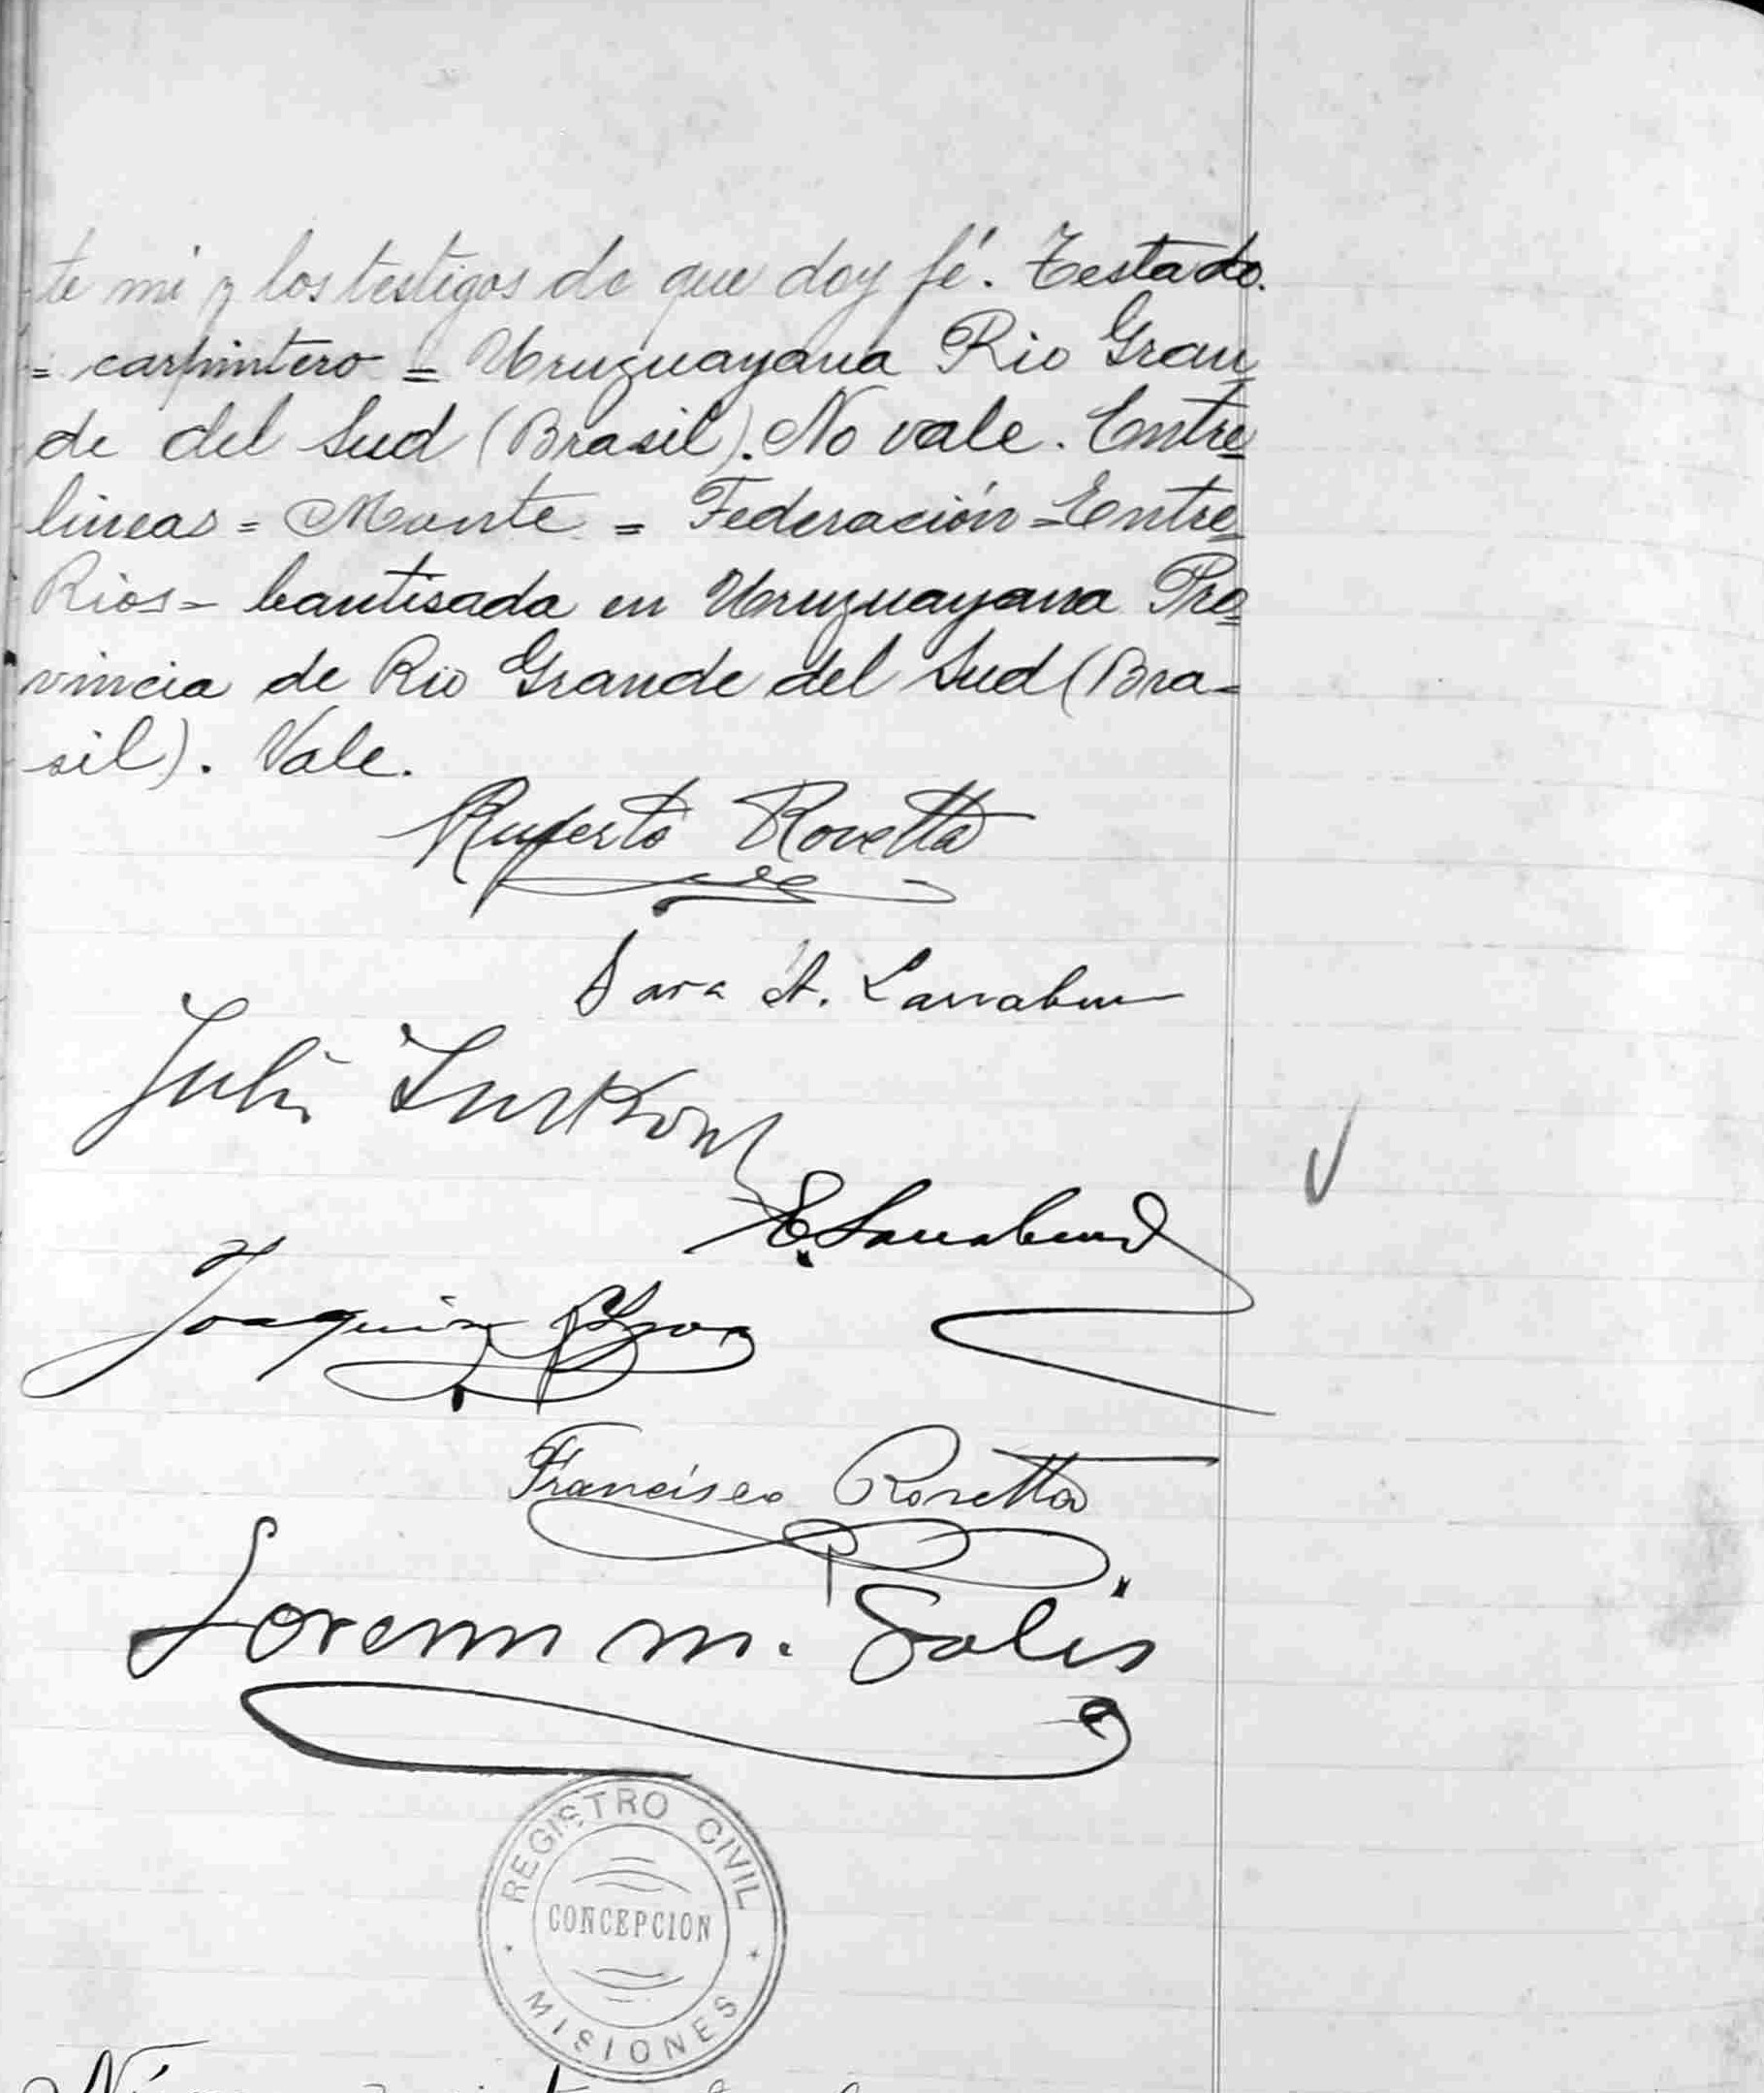 te mi y los testigos de que doy fé. Testado.
= carpintero = Uruguayana Rio Gran
de del Sud (Brasil). No vale. Entre
lineas = Monte = Federación = Entre
Rios = bautisada en Uruguayana Pro
vincia de Rio Grande del Sud (Bra-
sil). Vale.
Ruperto Rovetta
Sara A. Larrabur
Julio
E. Larrabur
Joaquin
Francisco Rovetta
Lorenzo M. Solis
REGISTRO CIVIL
CONCEPCION
MISIONES